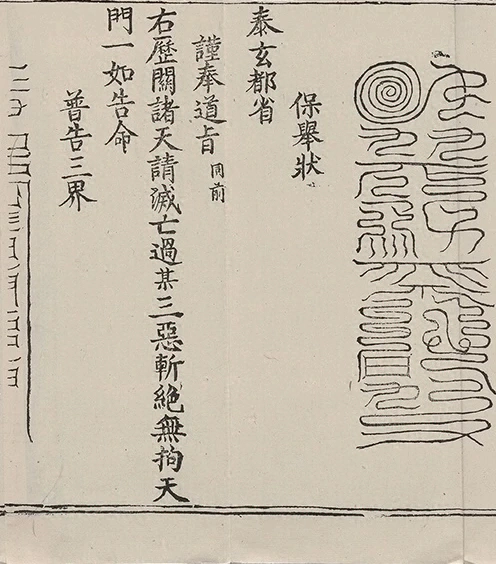 保舉狀
泰玄都省
謹奉道旨同前
右歷關諸天請滅亡過某三惡斬絶無拘天
門一如告命
普告三界